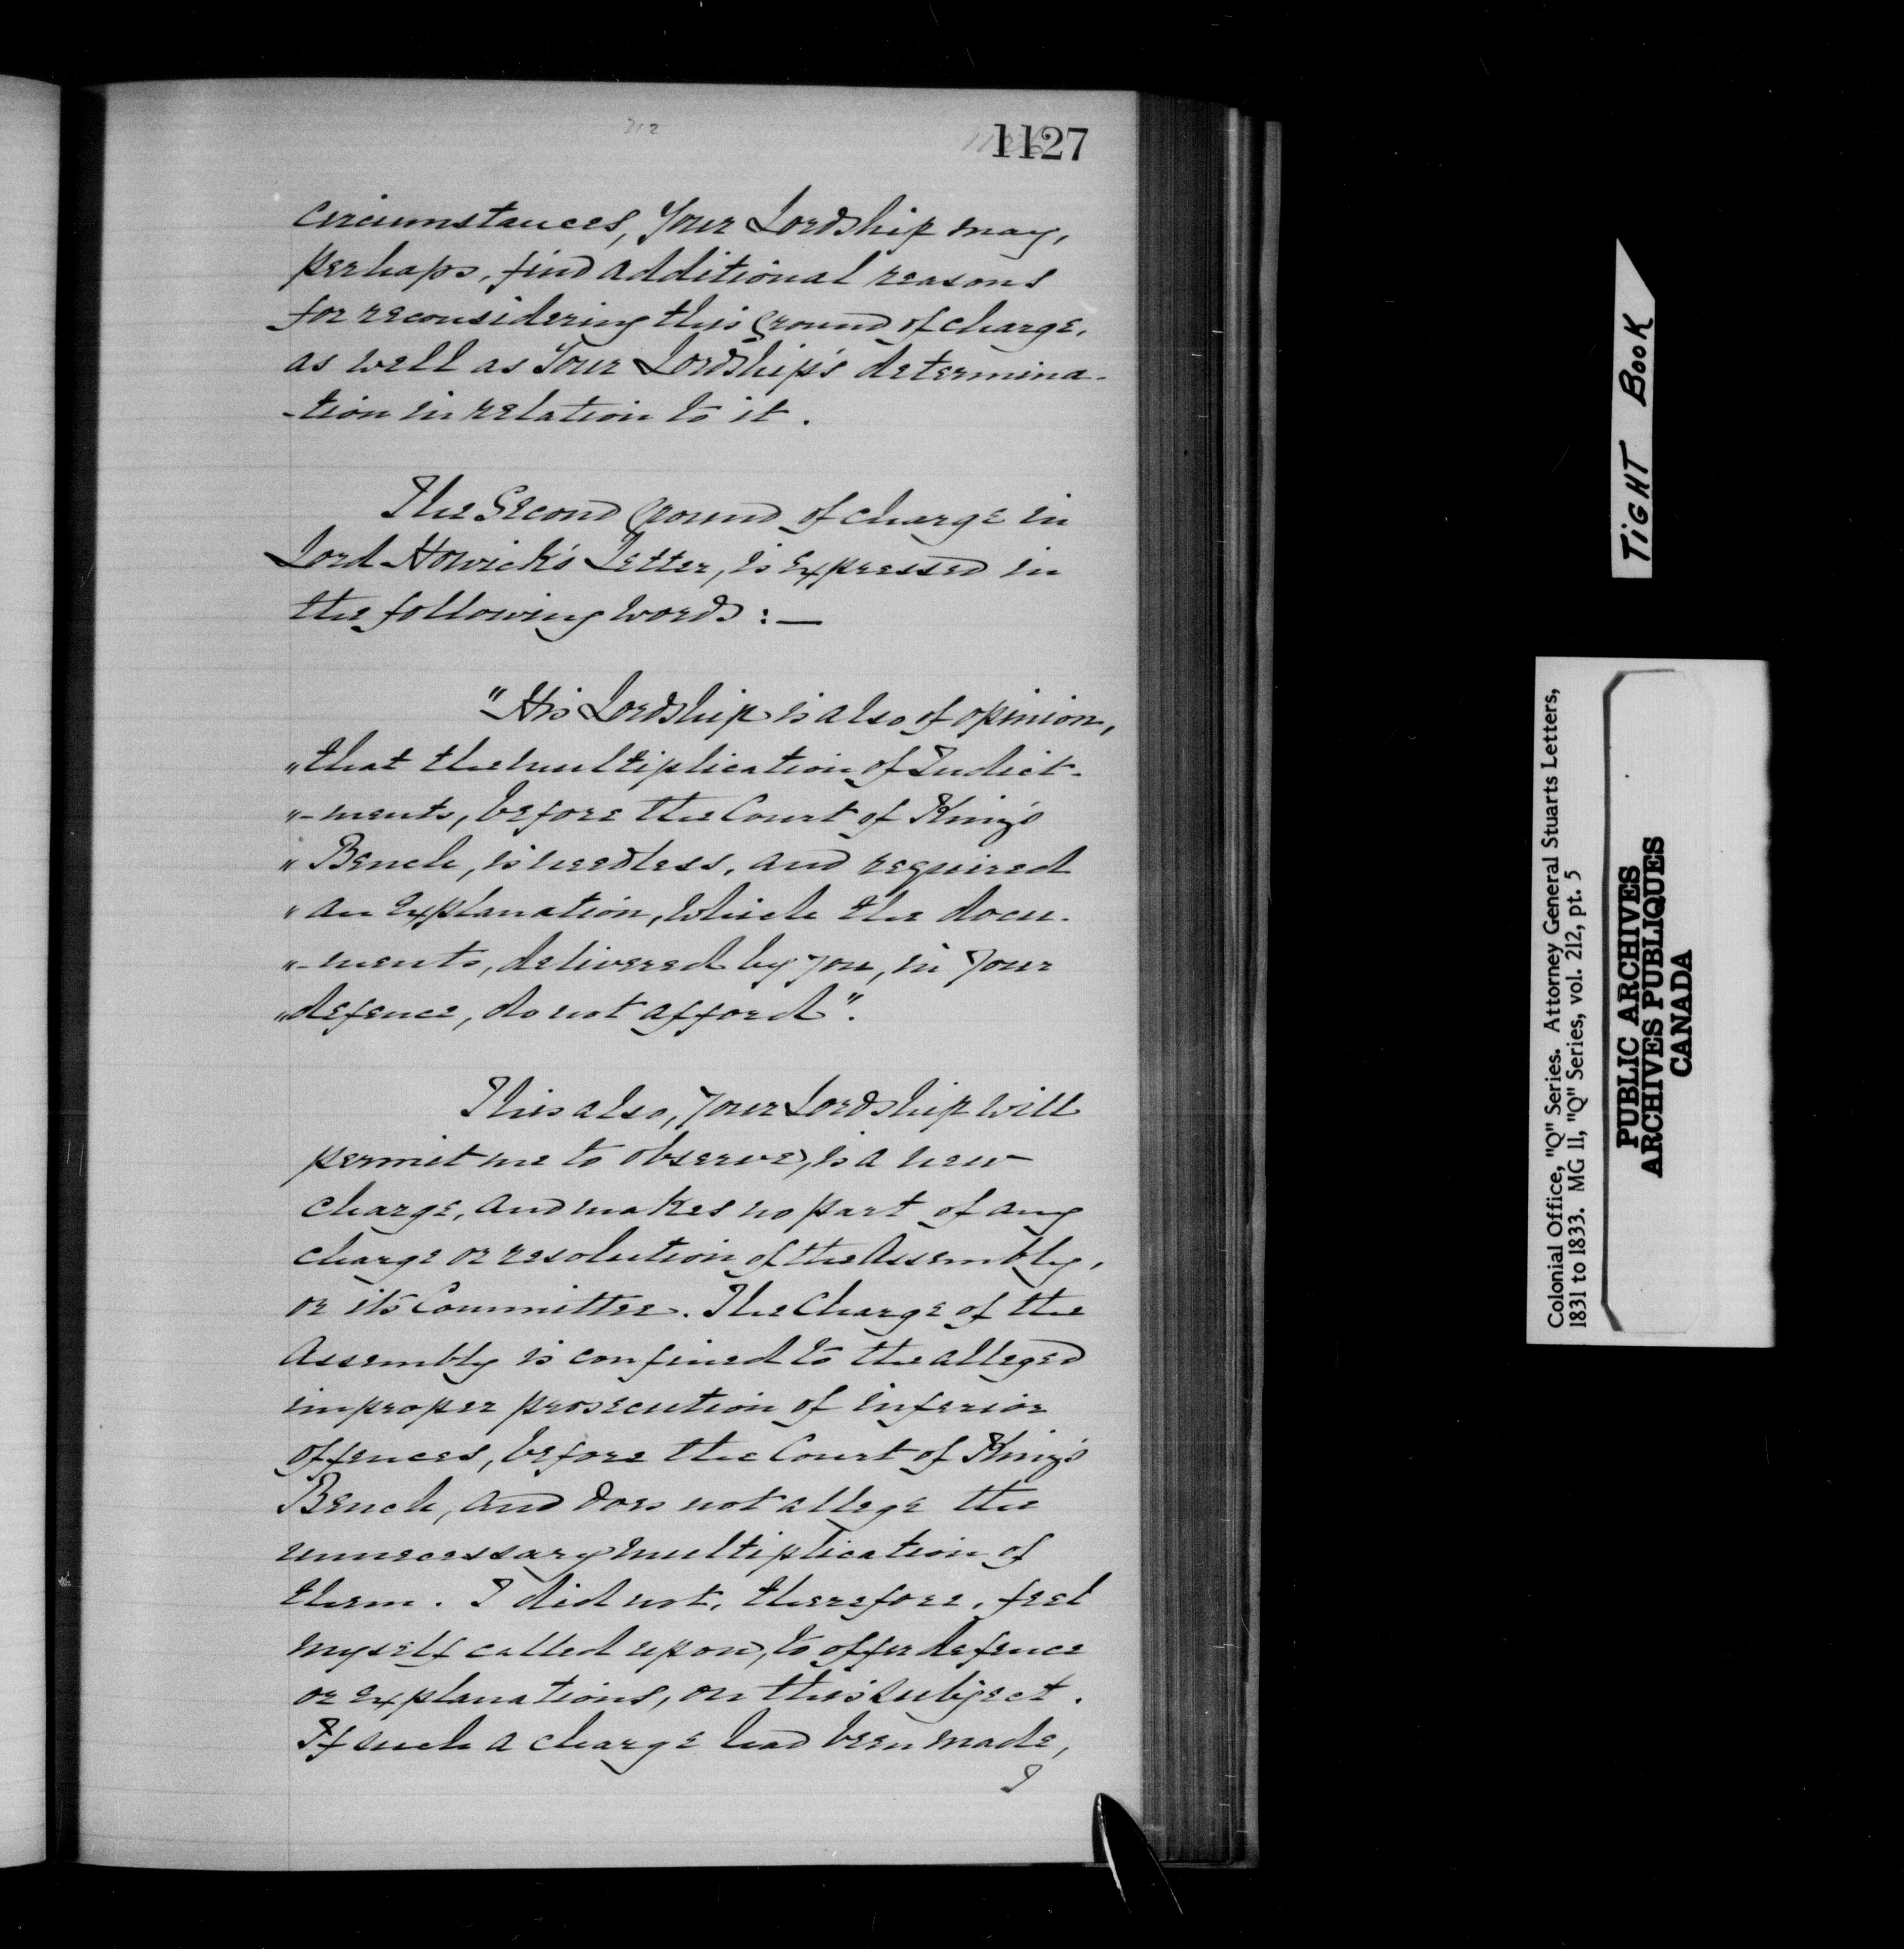 212
1127
circumstances, Your Lordship may,
perhaps, find additional reasons
for reconsidering this Ground of charge,
as well as Your Lordship's determina-
-tion in relation to it.
The Second Ground of charge in
Lord Howick's Letter, is expressed in
the following words:—
"His Lordship is also of opinion,
"that the multiplication of Indict-
"-ments, before the Court of King's
"Bench, is needless, and required
"an explanation, which the docu-
"-ments, delivered by you, in your
"defence, do not afford".
This also, your Lordship will
permit me to observe, is a new
charge, and makes no part of any
charge or resolution of the Assembly,
or its Committee. The Charge of the
Assembly is confined to the alleged
improper prosecution of inferior
offences, before the Court of King's
Bench, and does not allege the
unnecessary multiplication of
them. I did not, therefore, feel
myself called upon, to offer defence
or explanations, on this subject.
If such a charge had been made,
I
TiGHT BooK
Colonial Office, "Q" Series. Attorney General Stuarts Letters,
1831 to 1833. MG 11, "Q" Series, vol. 212, pt. 5
PUBLIC ARCHIVES
ARCHIVES PUBLIQUES
CANADA